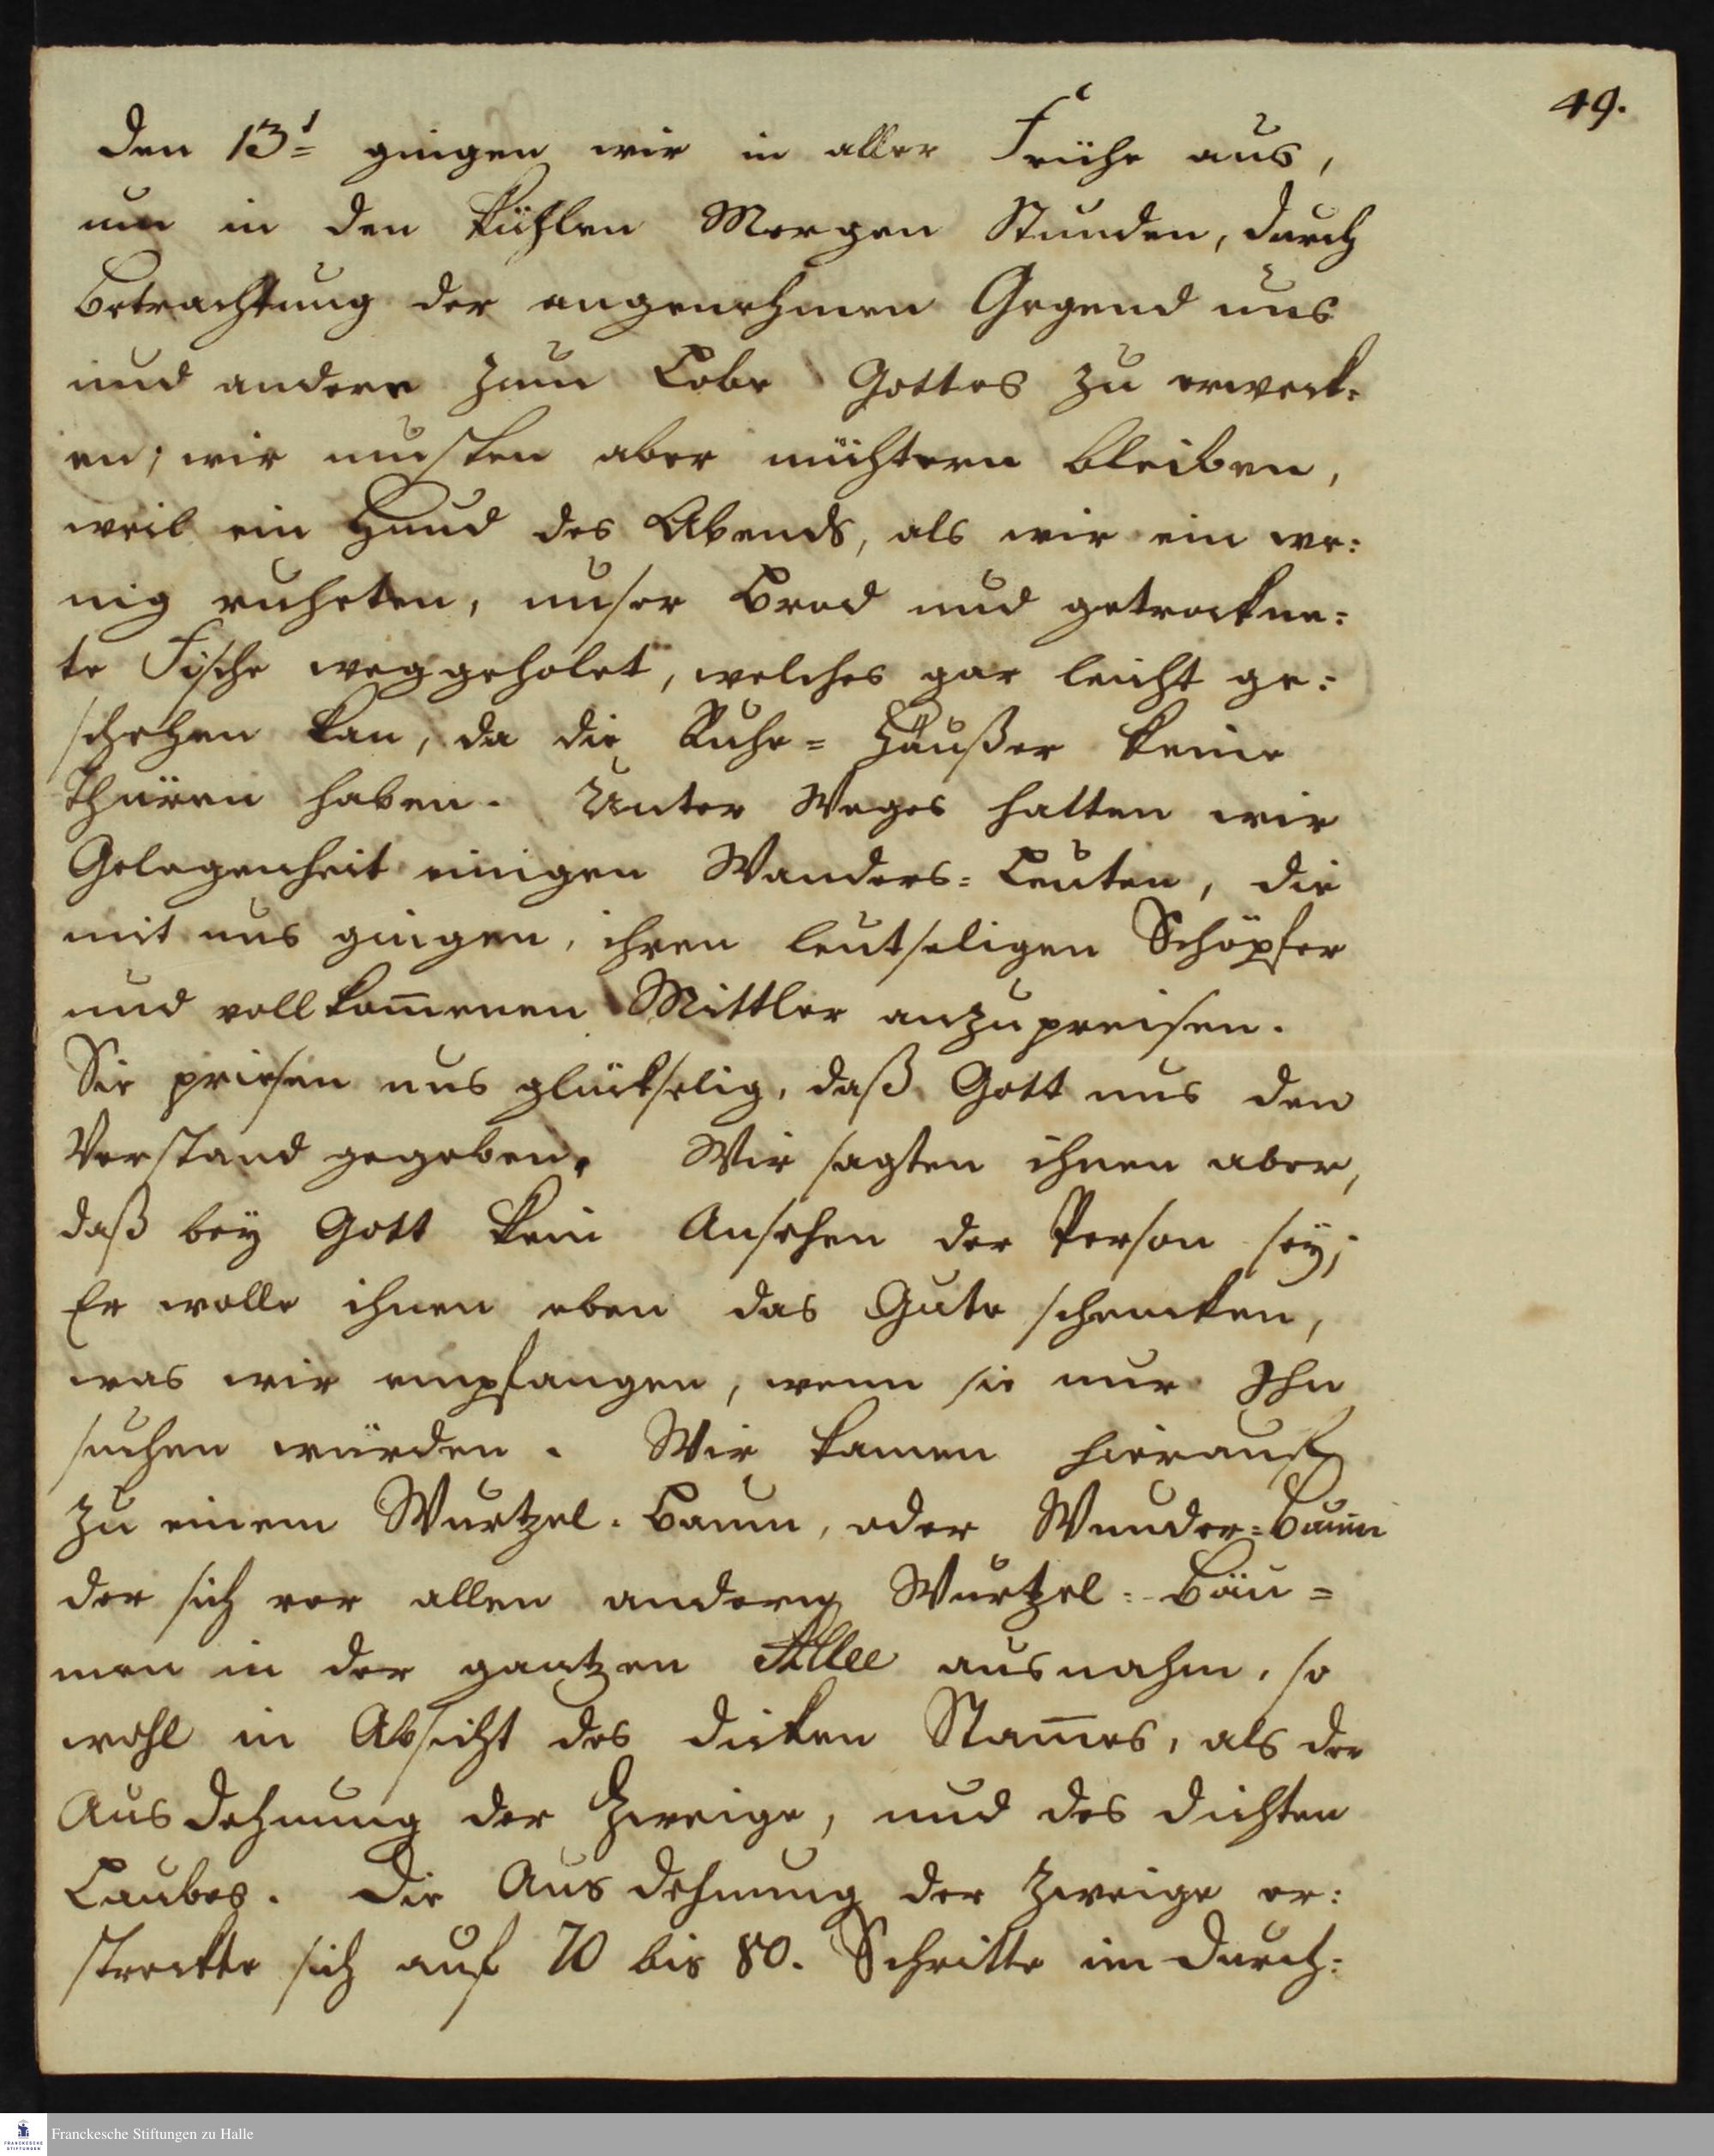 49.
Den 13t gingen wir in aller Frühe aus,
um in den kühlen Morgen Stunden, durch
Betrachtung der angenehmen Gegend uns
und andere zum Lobe Gottes zu erweck=
en; wir musten aber nüchtern bleiben,
weil ein Hund des Abends, als wir ein we=
nig ruheten, unser Brod und getrockne=
te Fische weggeholet, welches gar leicht ge=
schehen kan, da die Ruhe= Häußer keine
Thüren haben. Unter Weges hatten wir
Gelegenheit einigen Wanders= Leuten, die
mit uns gingen, ihren leutseligen Schöpfer
und vollkom̄enen Mittler anzupreisen.
Sie priesen uns glückselig, daß Gott uns den
Verstand gegeben. Wir sagten ihnen aber,
daß bey Gott kein Ansehen der Person sey;
Er wolle ihnen eben das Gute schencken,
was wir empfangen, wenn sie nur Ihn
suchen würden. Wir kamen hierauf
zu einem Wurtzel=Baum, oder Wunder=Baum
der sich vor allen andern Wurtzel=Bäu=
men in der gantzen Allee ausnahm, so
wohl in Absicht des dicken Stam̄es, als der
Ausdehnung der Zweige, und des dichten
Laubes. Die Ausdehnung der Zweige er=
streckte sich auf 70 bis 80. Schritte im Durch=
Franckesche Stiftungen zu Halle
FRANCKESCHE
STIFTUNGEN